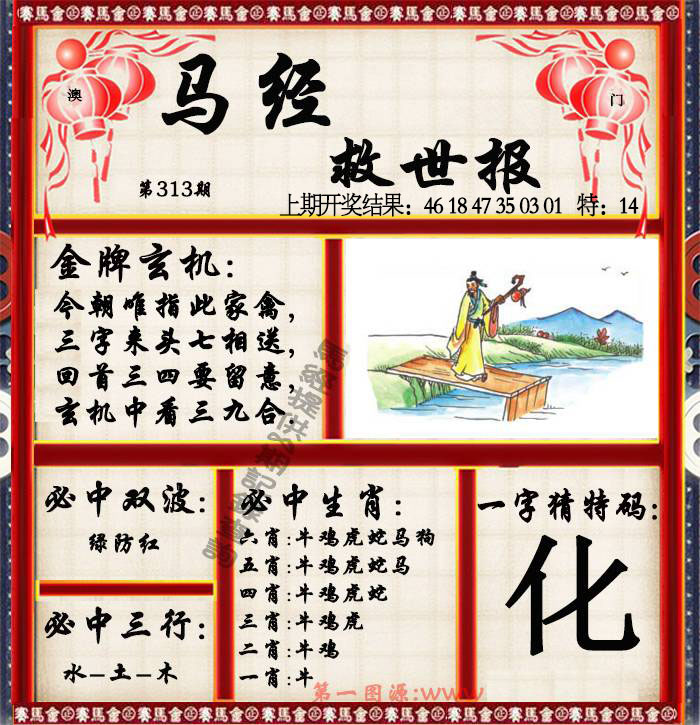 賽馬會金正賽馬會金正賽馬會金正賽馬會金正賽馬會
澳
门
马经
救世报
第313期
上期开奖结果：46 18 47 35 03 01 特：14
金牌玄机：
今朝唯指此家禽，
三字来头七相送，
回首三四要留意，
玄机中看三九合.
必中双波：
绿防红
必中三行：
水–土–木
必中生肖：
六肖:牛鸡虎蛇马狗
五肖:牛鸡虎蛇马
四肖:牛鸡虎蛇
三肖:牛鸡虎
二肖:牛鸡
一肖:牛
一字猜特码：
化
第一图源:www